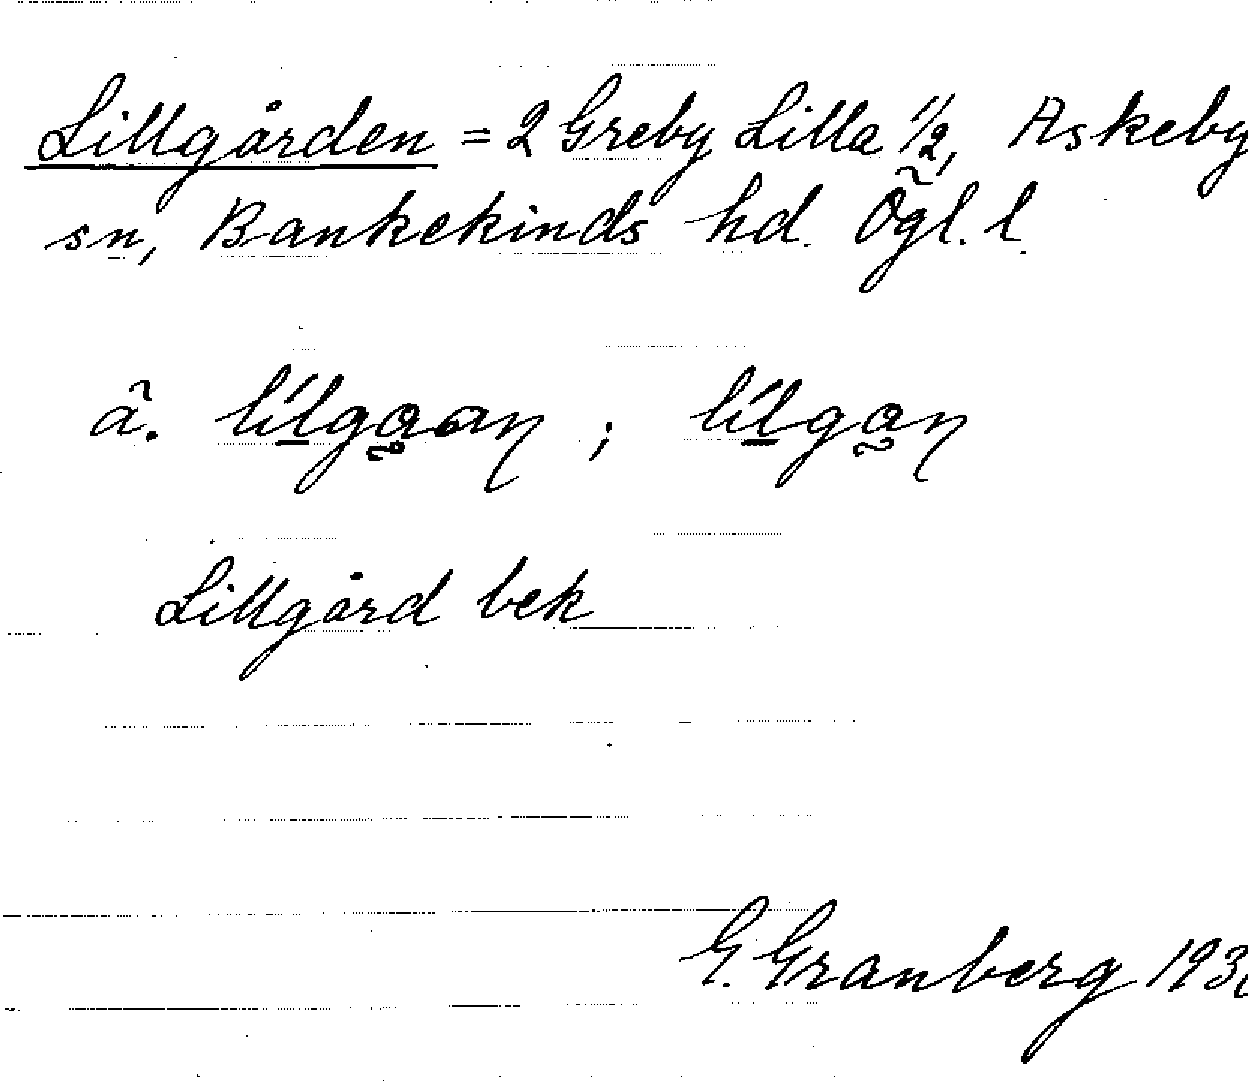 Lillgården = 2 Greby Lilla 1/2, Askeby
sn, Bankekinds hd. Ögl. l.
ã. lílgaan ; lílgan
Lillgård bek
G. Granberg 193